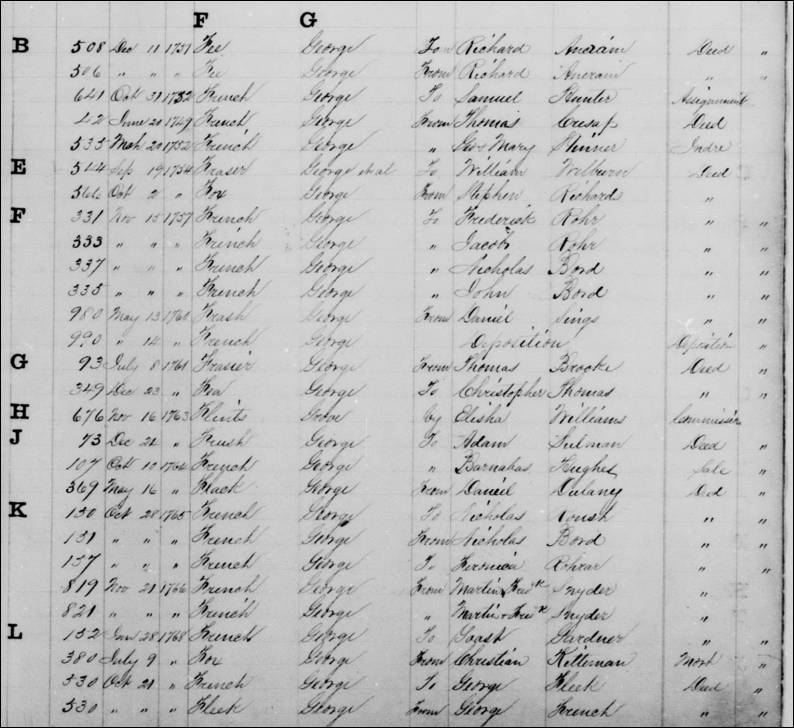 F G
B 508 Dec 11 1751 Fee George To Richard Ancram Deed "
506 " " " Fee George From Richard Ancram " "
641 Oct 31 1752 French George To Samuel Hunter Assignment
42 June 20 1749 French George From Thomas Cresap Deed
533 Mch 20 1752 French George " Mary Skinner Indre
E 514 Sep 19 1754 Fraser George et al To William Welburn Deed
566 Oct 2 " Fox George From Stephen Richard "
F 331 Nov 15 1757 French George To Frederick Rohr " "
333 " " " French George " Jacob Rohr " "
337 " " " French George " Nicholas Bord " "
335 " " " French George " John Bord " "
980 May 13 1760 Frash George From Daniel Sings " "
990 " 14 " French George Deposition Deposition "
G 93 July 8 1761 Frasier George From Thomas Brooke Deed "
349 Dec 23 " Fea George To Christopher Thomas " "
H 676 Nov 16 1763 Flints Grove by Elisha Williams Commission
J 73 Dec 21 " Frush George To Adam Deed "
107 Oct 10 1764 French George " Barnabas Hughes Sale "
369 May 16 " Flack George From Daniel Dulany Ded "
K 130 Oct 28 1765 French George To Nicholas Roush " "
131 " " " French George From Nicholas Bord " "
137 " " " French George To Feronica Rohrar " "
819 Nov 21 1766 French George From Martin & Fredk Snyder "
821 " " " French George " Martin & Fredk Snyder "
L 132 Jan 28 1768 French George To Goast Gardner " "
380 July 9 " Fox George From Christian Kitteman Mort "
530 Oct 21 " French George To George Fleck Deed "
530 " " " Fleck George From George French " "